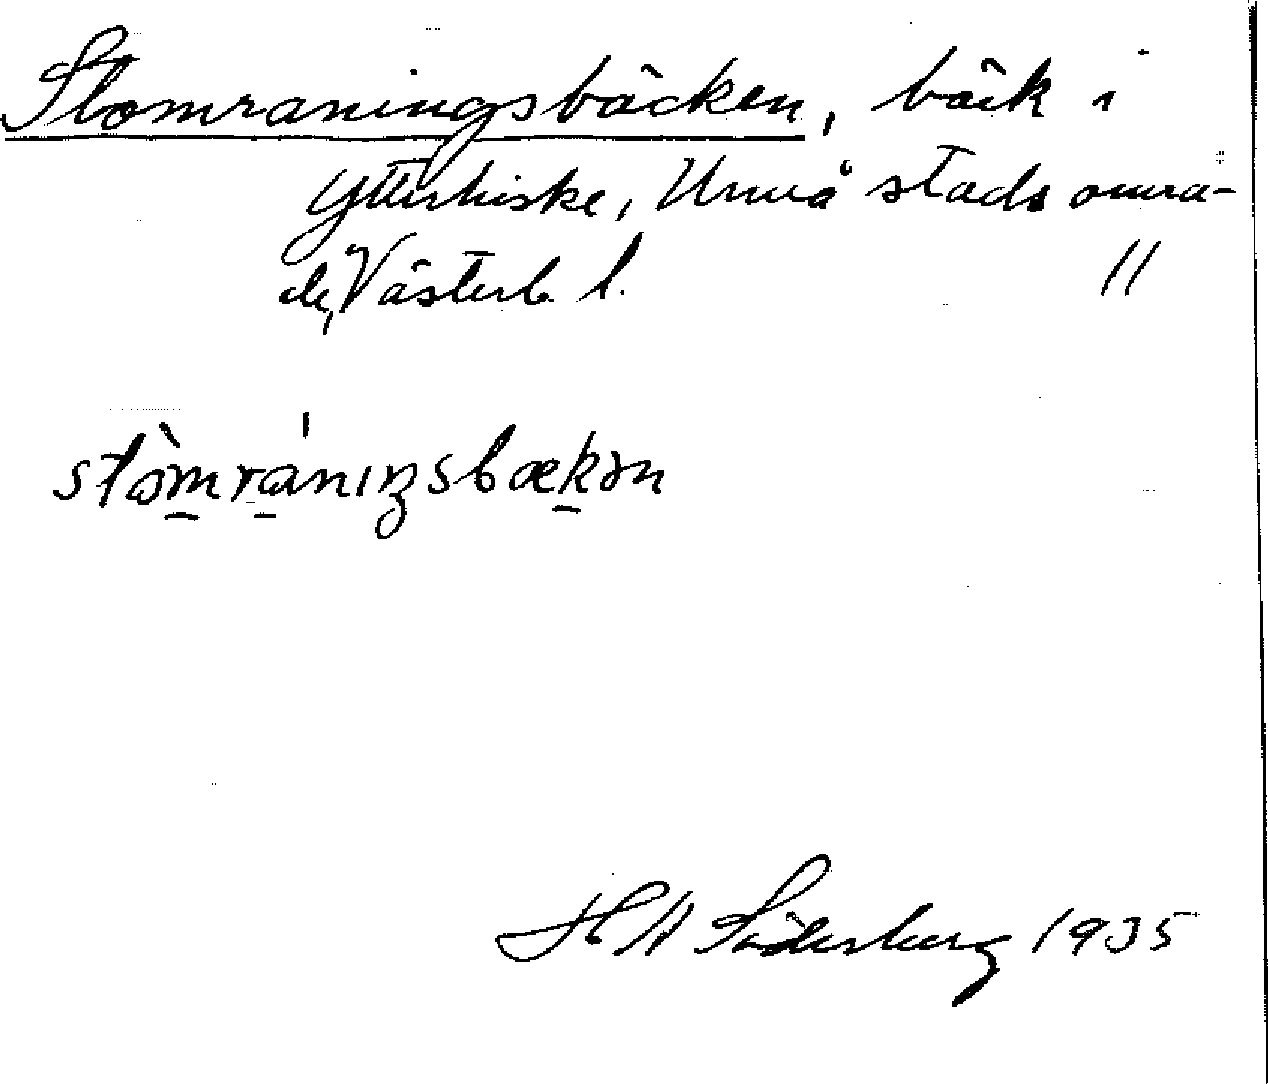 Stomraningsbäcken, bäck i
Ytterhiske, Umeå stads områ-
de, Västerb. l. //
stòmrániŋsbækən
H A Söderberg 1935